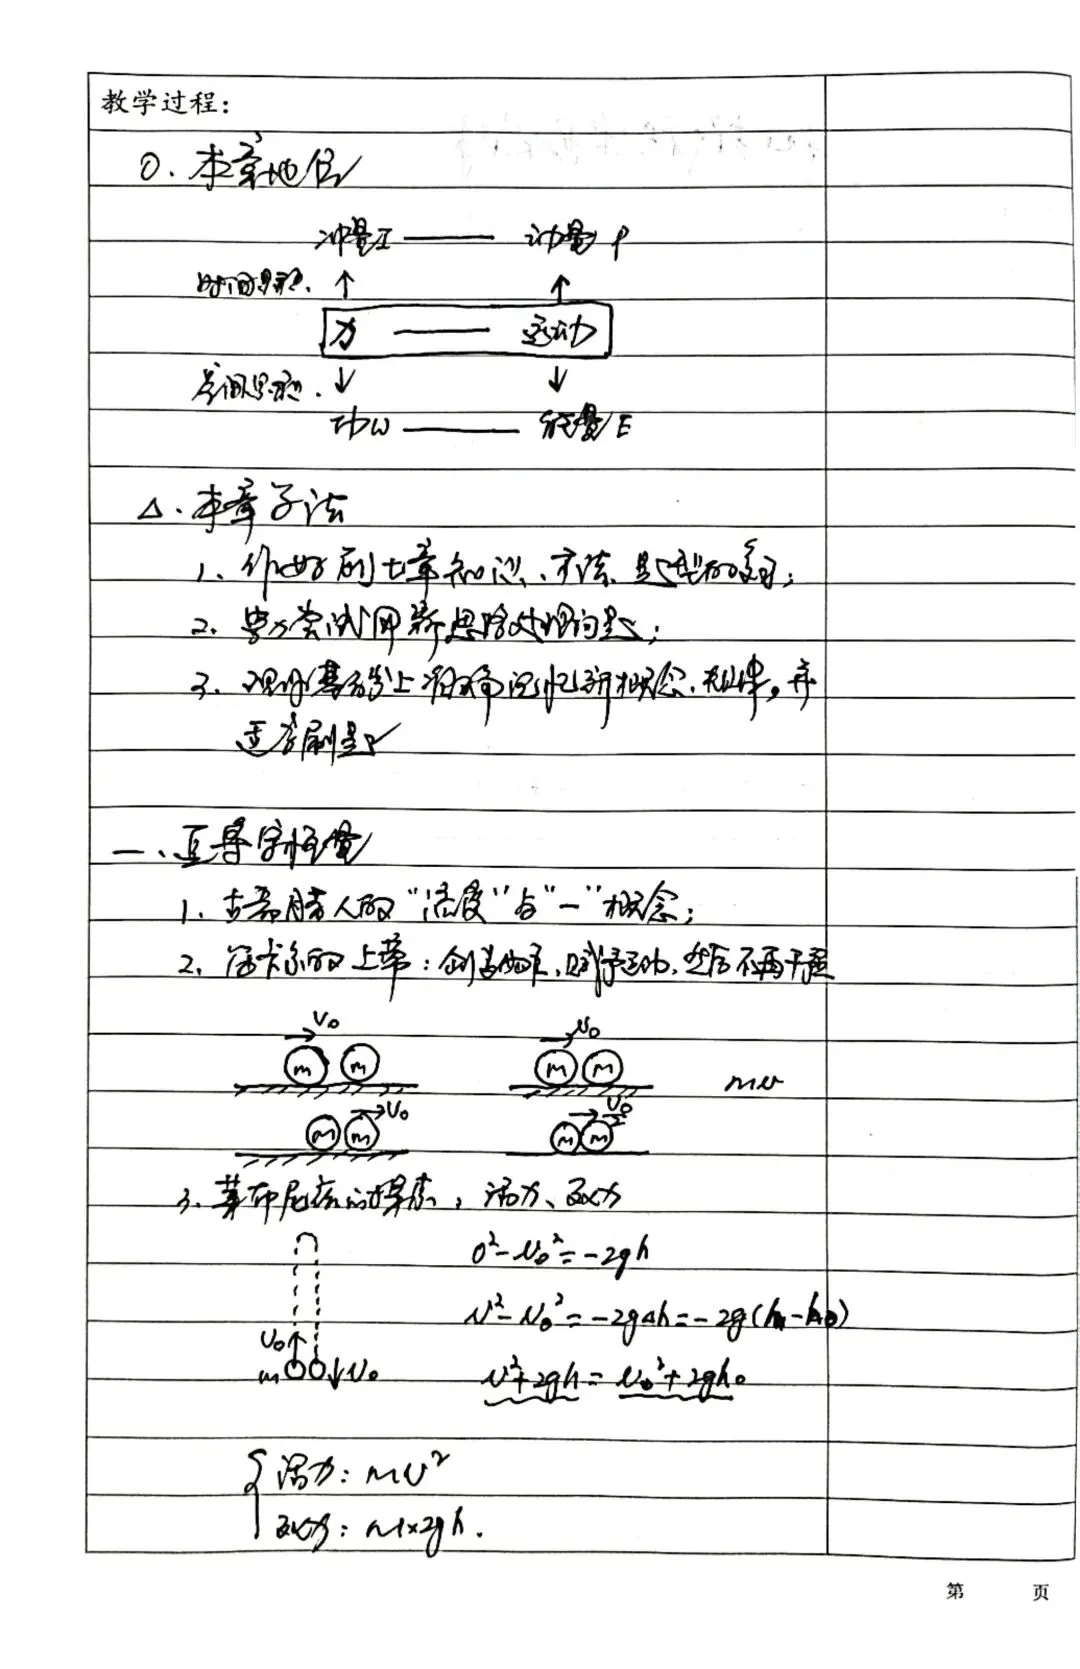 教学过程:
0. 本章地位
冲量I —— 动量P
时间累积. ↑ ↑
力 —— 运动
空间累积. ↓ ↓
功W —— 能量E
△. 本章学法
1. 作好前七章知识、方法、题型的复习;
2. 要尝试用新思路处理问题;
3. 理解基础上准确记忆新概念、规律。并
适当刷题
一、守恒量
1. 古希腊人的“活度”与“一”概念;
2. 笛卡尔的上帝: 创造物质、赋予运动、然后不再干预
V₀ v₀
m m m m mv
V₀ V₀/2
m m m m
3. 莱布尼兹的探索; 活力、死力
0²-v₀²=-2gh
v²-v₀²=-2g△h=-2g(h-h₀)
V₀
m v₀ v²+2gh=v₀²+2gh₀
{ 活力: mv²
死力: m×2gh.
第 页